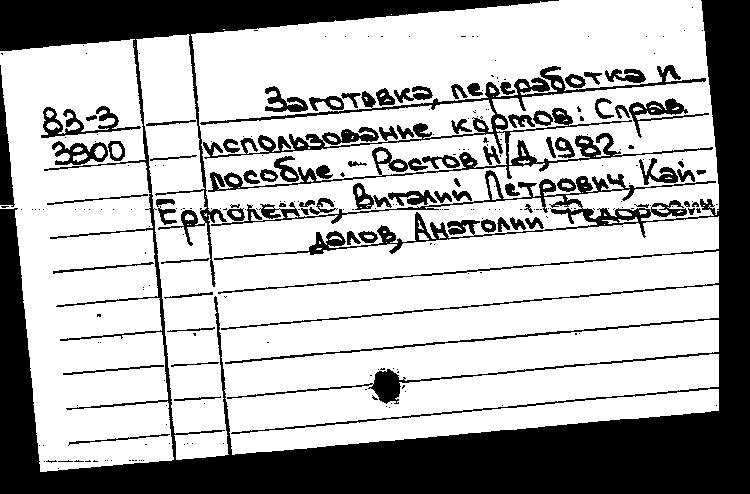 83-3
3900
Заготовка, переработка и
использование кортов: Справ.
пособие. - Ростов н/Д, 1982.
Ермоленко, Виталий Петрович, Кай-
далов, Анатолий Федорович